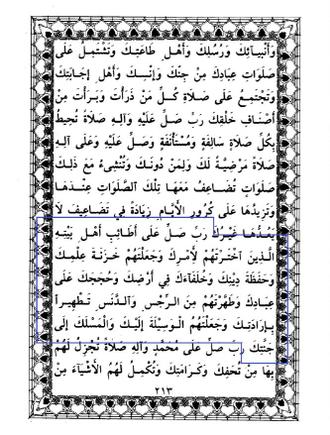 وَأَنْبِيَائِكَ وَرُسُلِكَ وَأَهْلِ طَاعَتِكَ وَتَشْتَمِلُ عَلَى
صَلَوَاتِ عِبَادِكَ مِنْ جِنِّكَ وَإِنْسِكَ وَأَهْلِ إِجَابَتِكَ
وَتَجْتَمِعُ عَلَى صَلَاةِ كُلِّ مَنْ ذَرَأْتَ وَبَرَأْتَ مِنْ
أَصْنَافِ خَلْقِكَ رَبِّ صَلِّ عَلَيْهِ وَآلِهِ صَلَاةً تُحِيطُ
بِكُلِّ صَلَاةٍ سَالِفَةٍ وَمُسْتَأْنَفَةٍ وَصَلِّ عَلَيْهِ وَعَلَى آلِهِ
صَلَاةً مَرْضِيَّةً لَكَ وَلِمَنْ دُونَكَ وَتُنْشِىءُ مَعَ ذٰلِكَ
صَلَوَاتٍ تُضَاعِفُ مَعَهَا تِلْكَ الصَّلَوَاتِ عِنْدَهَا
وَتَزِيدُهَا عَلَى كُرُورِ الْأَيَّامِ زِيَادَةً فِي تَضَاعِيفَ لَا
يَعُدُّهَا غَيْرُكَ رَبِّ صَلِّ عَلَى أَطَائِبِ أَهْلِ بَيْتِهِ
الَّذِينَ اخْتَرْتَهُمْ لِأَمْرِكَ وَجَعَلْتَهُمْ خَزَنَةَ عِلْمِكَ
وَحَفَظَةَ دِينِكَ وَخُلَفَاءَكَ فِي أَرْضِكَ وَحُجَجَكَ عَلَى
عِبَادِكَ وَطَهَّرْتَهُمْ مِنَ الرِّجْسِ وَالدَّنَسِ تَطْهِيراً
بِإِرَادَتِكَ وَجَعَلْتَهُمُ الْوَسِيلَةَ إِلَيْكَ وَالْمَسْلَكَ إِلَى
جَنَّتِكَ رَبِّ صَلِّ عَلَى مُحَمَّدٍ وَآلِهِ صَلَاةً تُجْزِلُ لَهُمْ
بِهَا مِنْ تُحَفِكَ وَكَرَامَتِكَ وَتُكْمِلُ لَهُمُ الْأَشْيَاءَ مِنْ
٢١٣